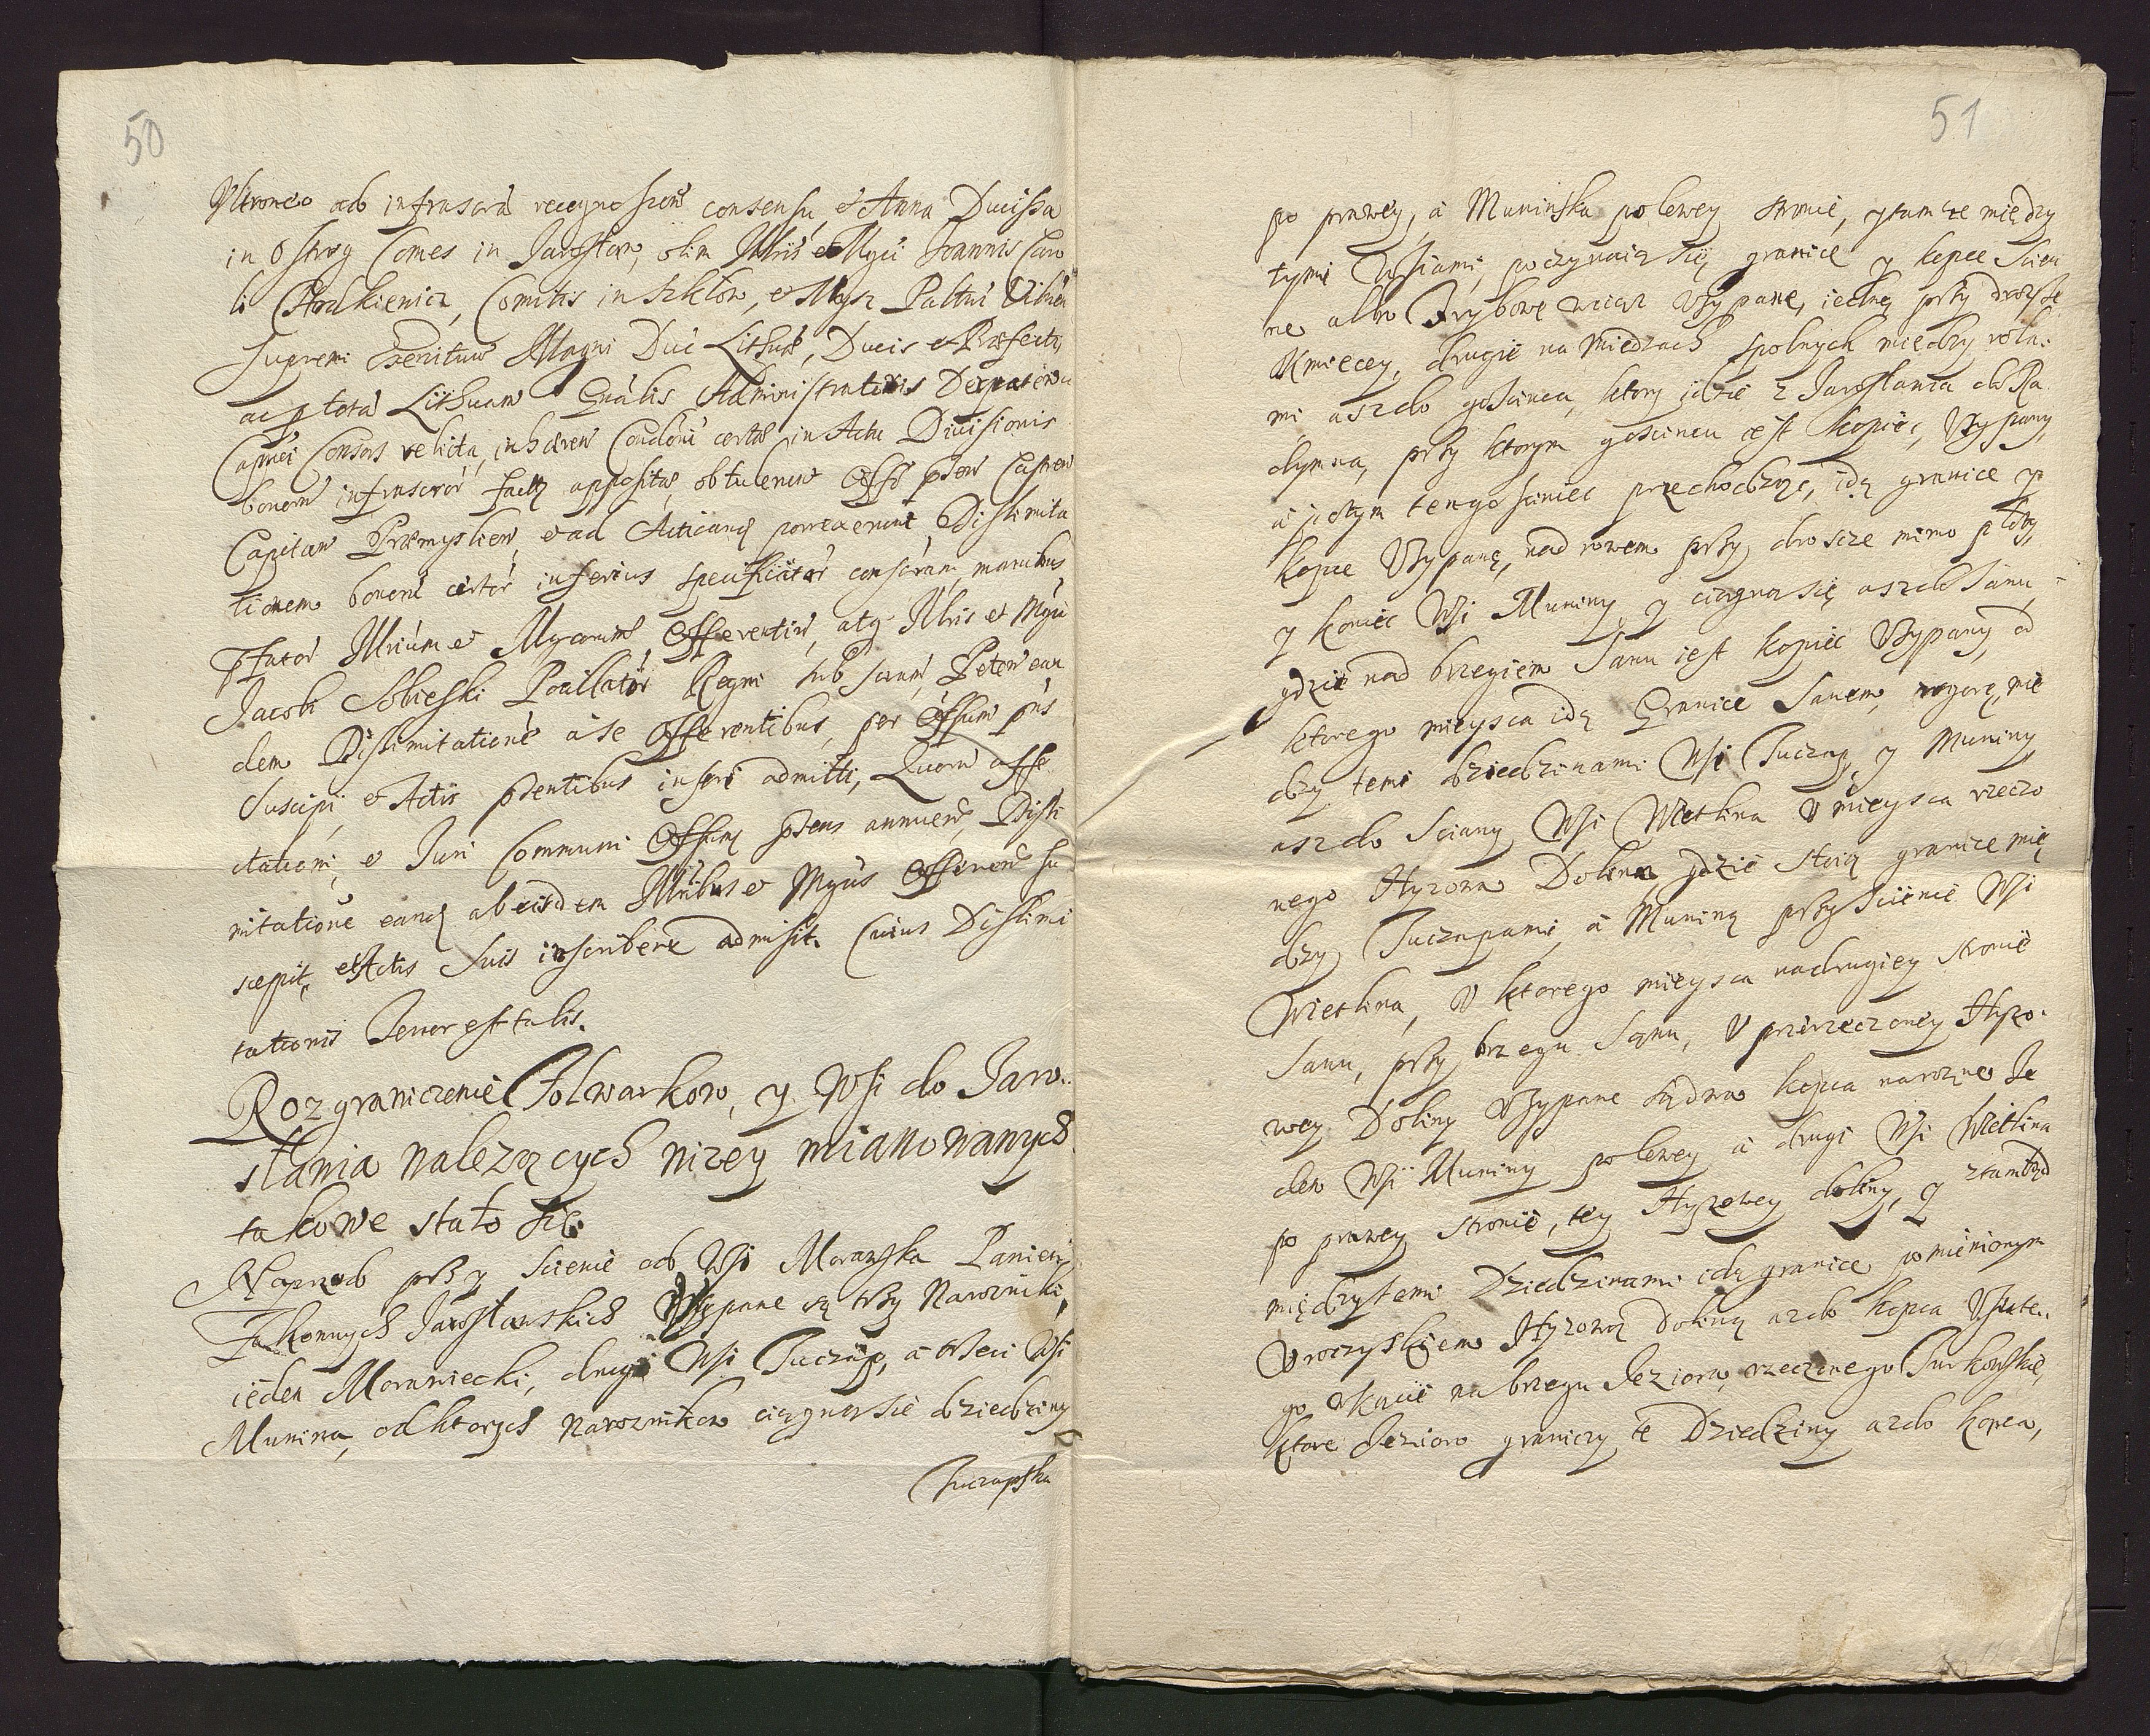 50
Vltroneo ad infrascra recognoscen consensu et Anna Ducissa
in Ostrog Comes in Jarosław, olim Illris et Mgci Joannis Caro
li Chodkiewicz, Comitis in Szkłow, et Mysz Paltni Vilnen
supremi Exercituu Magni Duc Lithua, Ducis et Præfecti,
ac p tota Lithuam Gnalis Administratoris
Consors relicta, inhæren Condoni certæ in Actu Diuisionis
bonoru infrascror factæ appositæ, obtulerunt Offo pnti Castren
Capitan Præmyslien, et ad Acticandu porrexerunt, Dislimita
tionem bonoru certor inferius specificator conscram, manibus
Pfator Illrium et Mgcorum Offerentiu, atq Illris et Mgci
Jacobi Sobieski Pocillator Regni subscram, Peten ean
dem Dislimitatione a se Offerentibus, per Offium pns
Suscipi, et Actis pntibus inseri admitti, Quoru affe
ctationi, et Juri Communi Offium pns annuen, Disli
mitatione eand ab eisdem Illribus et Mgcis Offeren su
scepit, et Actis Suis inscribere admisit. Cuius Dislimi
tationis Tenor est talis.
Rozgraniczenie Folwarkow, y Wsi do Jaro.
sławia nalezących nizey mianowanych
takowe stało się.
Naprzod przy scienie od Wsi Morawska Panien
Zakonnych Jarosławskich Vsypane są trzy Narozniki,
ieden Morawiecki, drugi Wsi Tuczap, a trzeci Wsi
Munina, od ktorych Naroznikow ciągna sie dziedziny
Tuczapska
51
po prawey, a Muninska po lewey stronie, y tamze między
tymi Wsiami, poczynaia się granice y kopce Scien
ne albo Grzbowe wciąz Vsypane, iedne przy drozce
Kmiecey, drugie na Miedzach spolnych miedzy rola.
mi asz do goscinca, ktory idzie z Jarosławia do Ra
dymna, przy ktorym goscincu iest kopiec Vsypany,
a potym ten gosciniec przechodząc, idą granice y
kopce Vsypane, nad rowem przy drodze mimo płoty,
y koniec Wsi Muniny y ciągna się asz do Sanu,
gdzie nad brzegiem Sanu iest kopiec Vsypany, od
ktorego mieysca idą Granice Sanem, w gorę, mie
dzy temi dziedzinami Wsi Tuczap, y Muniny
asz do Sciany Wsi Wietlina V mieysca rzeczo
nego Hyzowa Dolina, gdzie stoią granice mię
dzy Tuczapami, a Muniną przy Scienie Wsi
Wietlina, V ktorego mieysca na drugiey stronie
Sanu, przy brzegu Sanu, V przerzeczoney Hyzo.
wey Doliny Vsypane są dwa kopca narozne Je
den Wsi Muniny po lewey a drugi Wsi Wietlina
po prawey stronie, tey Hyzowey doliny, y ztamtąd
między temi Dziedzinami idą granice pomienionym
Vroczyskiem Hyzową Doliną az do kopca Vsute.
go w kącie na brzegu Jeziora, rzeczonego Turkowskie,
ktore Jezioro graniczy te Dziedziny az do kopca,